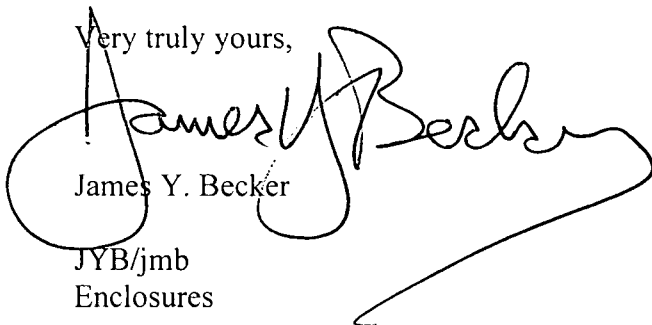 Very truly yours,
James Y Becker
James Y. Becker
JYB/jmb
Enclosures